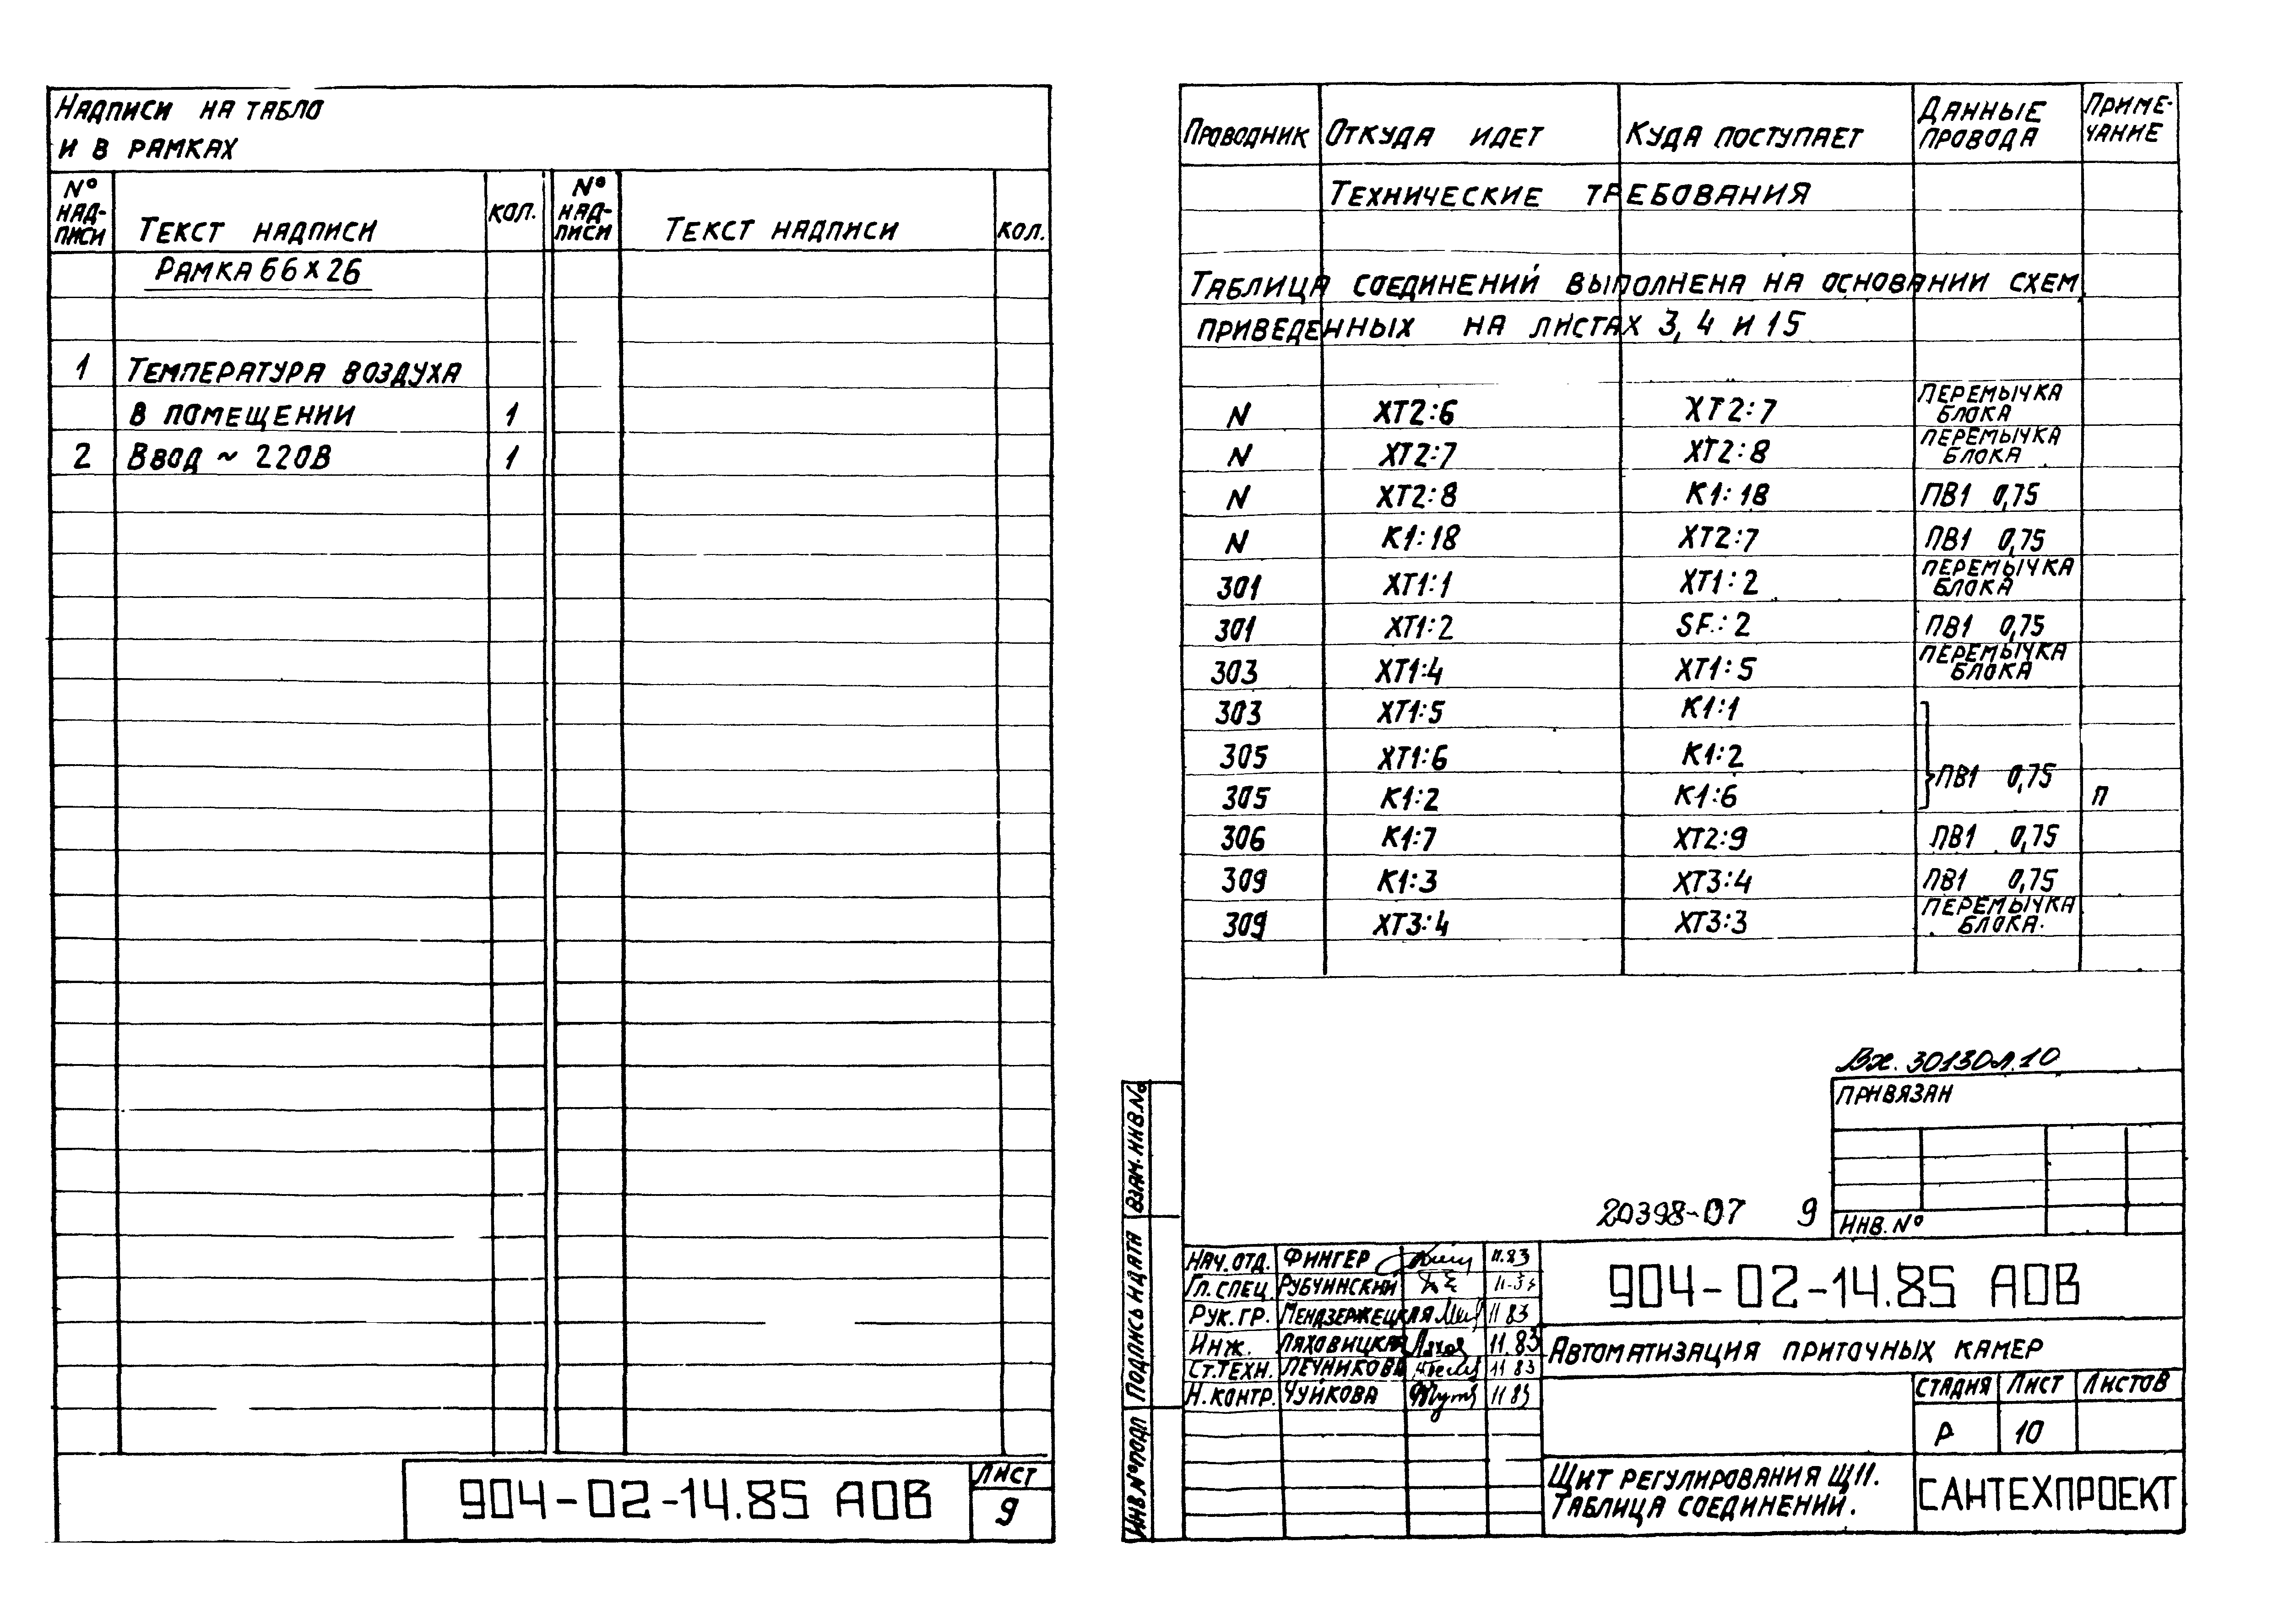 Надписи на табло
и в рамках
№ надписи Текст надписи кол. № надписи Текст надписи кол.
Рамка 66х26
1 Температура воздуха
в помещении 1
2 Ввод ~ 220В 1
904-02-14.85 АОВ
Лист
9
Проводник Откуда идет Куда поступает Данные провода Приме-чание
Технические требования
Таблица соединений выполнена на основании схем
приведенных на листах 3, 4 и 15
N ХТ2:6 ХТ2:7 перемычка блока
N ХТ2:7 ХТ2:8 перемычка блока
N ХТ2:8 К1:18 ПВ1 0,75
N К1:18 ХТ2:7 ПВ1 0,75
301 ХТ1:1 ХТ1:2 перемычка блока
301 ХТ1:2 SF.:2 ПВ1 0,75
303 ХТ1:4 ХТ1:5 перемычка блока
303 ХТ1:5 К1:1
305 ХТ1:6 К1:2 ПВ1 0,75
305 К1:2 К1:6 п
306 К1:7 ХТ2:9 ПВ1 0,75
309 К1:3 ХТ3:4 ПВ1 0,75
309 ХТ3:4 ХТ3:3 перемычка блока.
Вх. 30130л.10
Привязан
20398-07 9
Инв. №
Взам. инв. №
Подпись и дата
Инв. № подл
Нач. отд. Фингер 11.83
Гл. спец. Рубчинский
Рук. гр. Мендзержецкая 11 83
Инж. Ляховицкая 11.83
Ст. техн. Печникова 11 83
Н. контр. Чуйкова 11 83
904-02-14.85 АОВ
Автоматизация приточных камер
Стадия Лист Листов
Р 10
Щит регулирования Щ11.
Таблица соединений.
САНТЕХПРОЕКТ